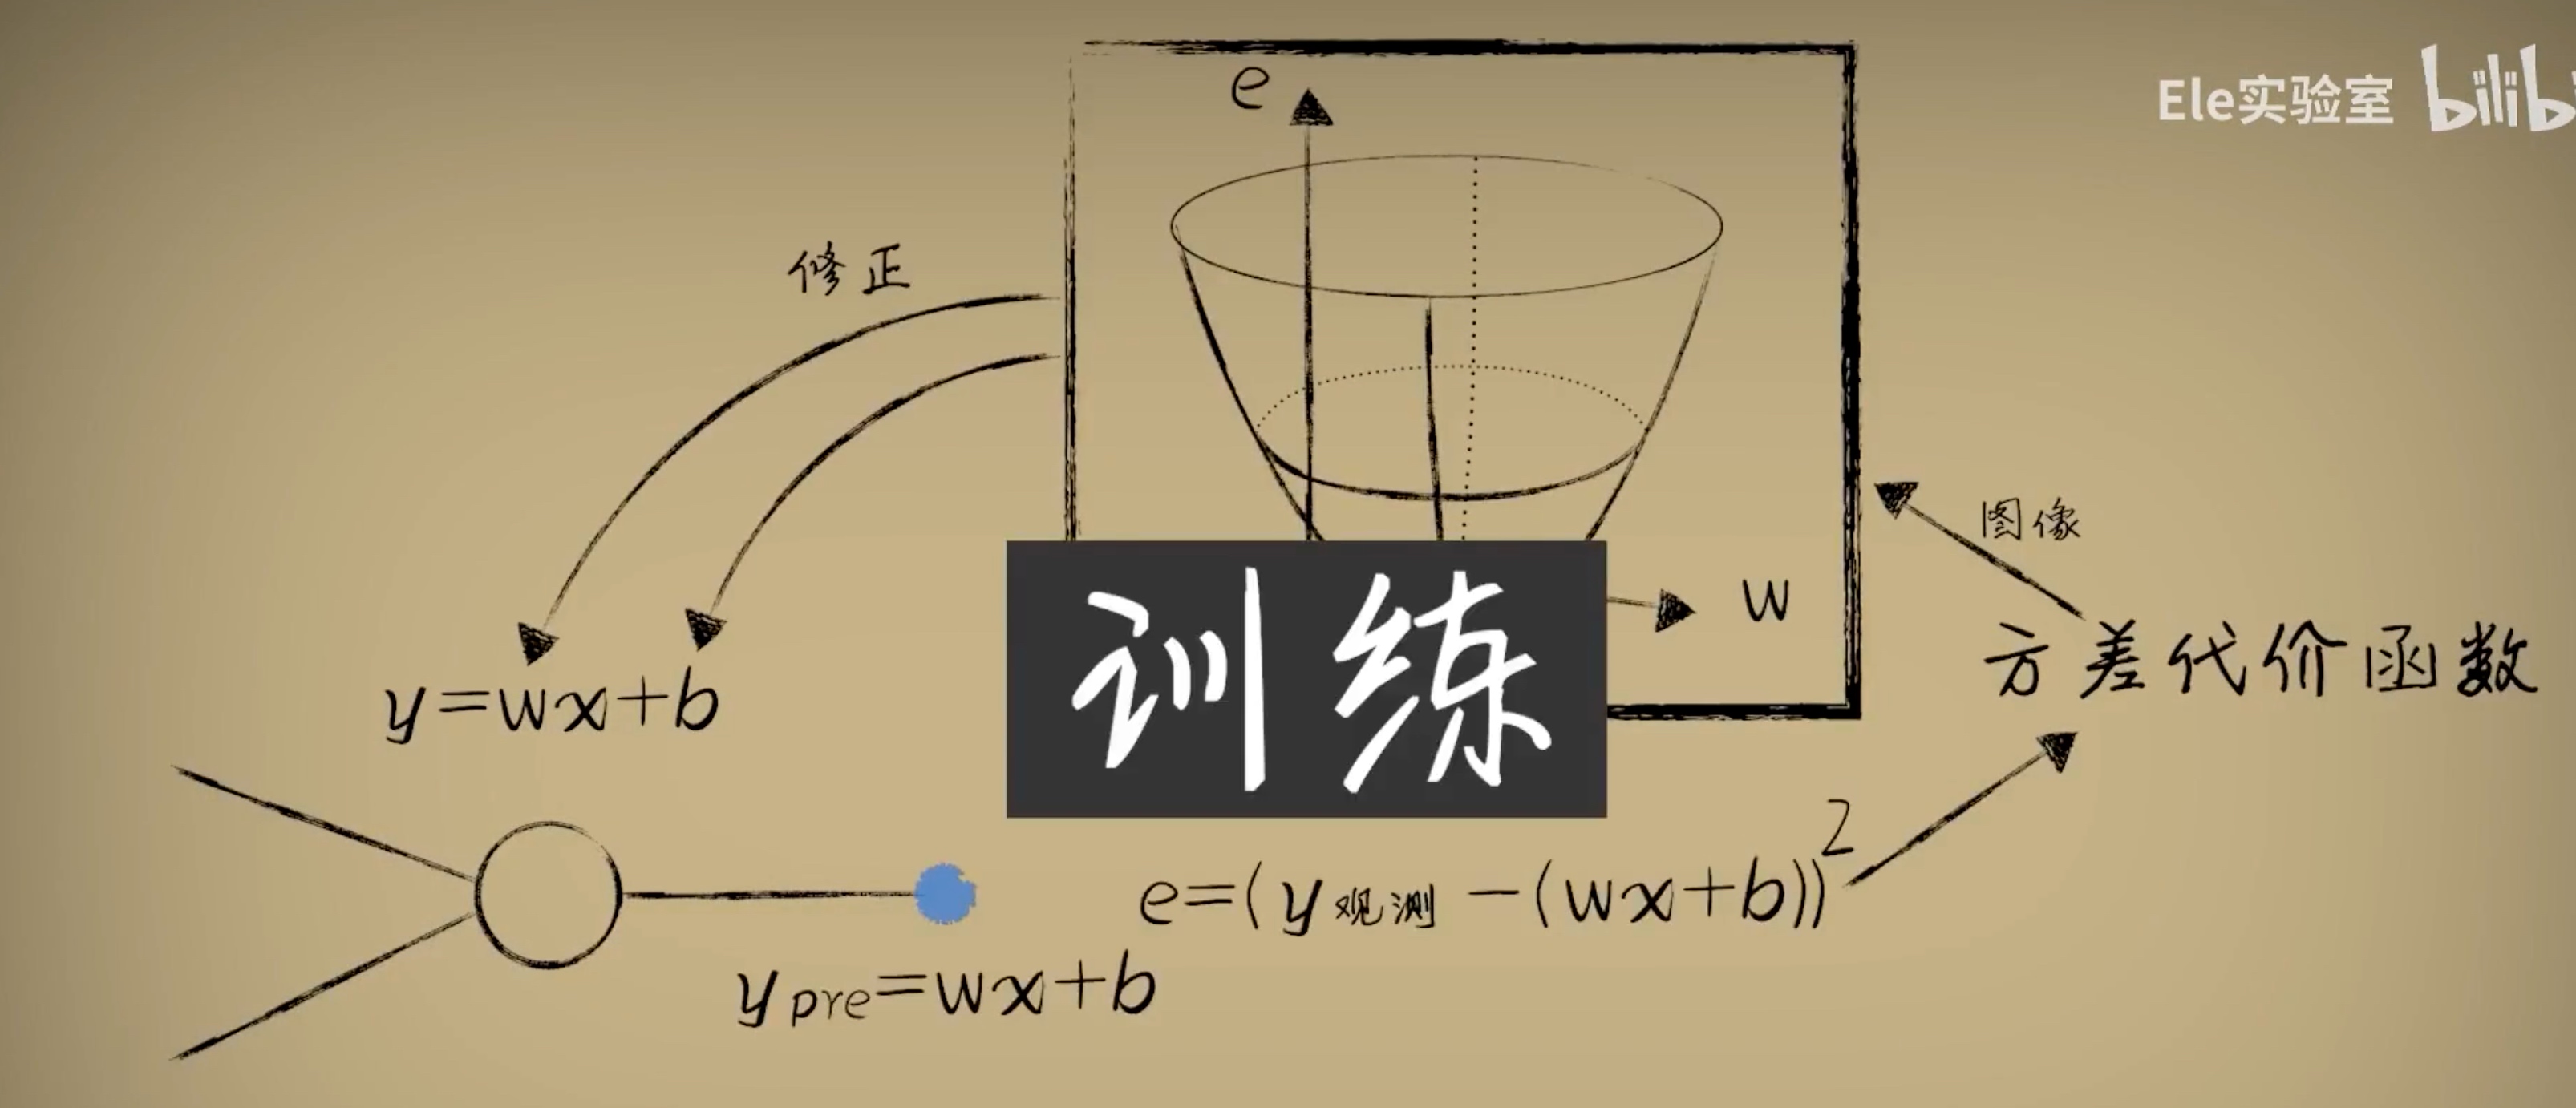 Ele实验室 bilib
e
修正
图像
w
方差代价函数
y=wx+b
训练
e=(y观测-(wx+b))²
ypre=wx+b